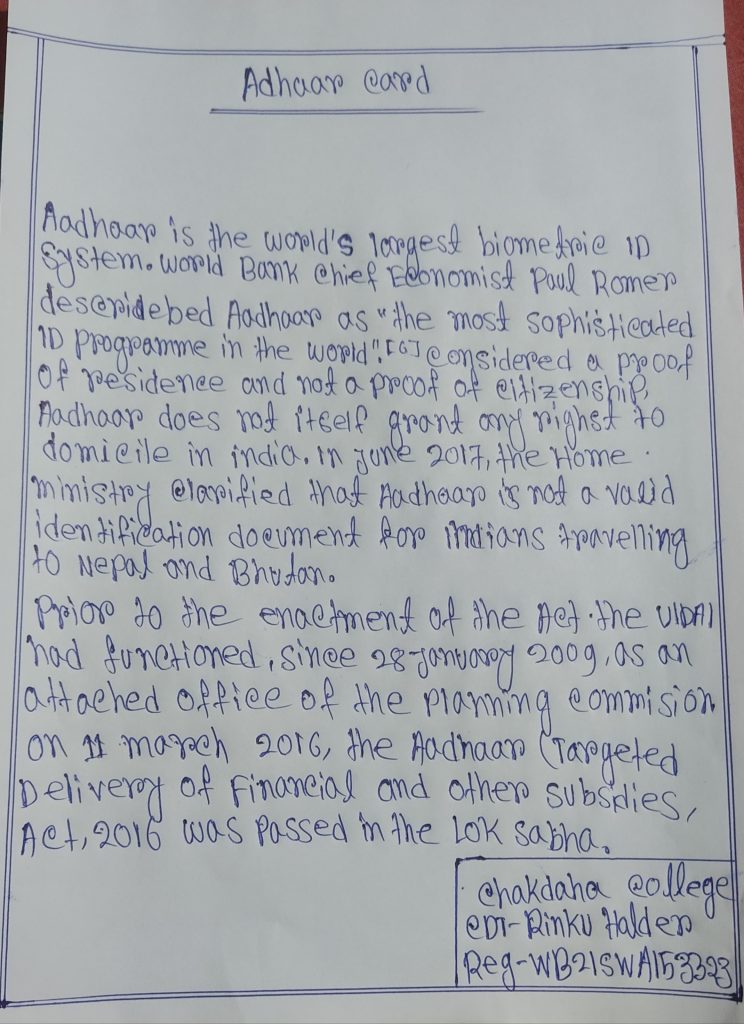 Adhaar Card
Aadhaar is the world's largest biometric ID
System. World Bank Chief Economist Paul Romer
descridebed Aadhaar as "the most sophisticated
ID programme in the world".[6] Considered a proof
of residence and not a proof of citizenship,
Aadhaar does not itself grant any righst to
domicile in india. in june 2017, the Home
ministry Clarified that Aadhaar is not a valid
identification document for indians travelling
to Nepal and Bhutan.
Prior to the enactment of the Act. the UIDAI
had functioned, since 28 january 2009, as an
attached office of the planning commision
on 11 march 2016, the Aadhaar (Targeted
Delivery of Financial and other subsdies,
Act, 2016 was passed in the LOK sabha.
Chakdaha College
CDT- Rinku Halder
Reg-WB21SWA153323